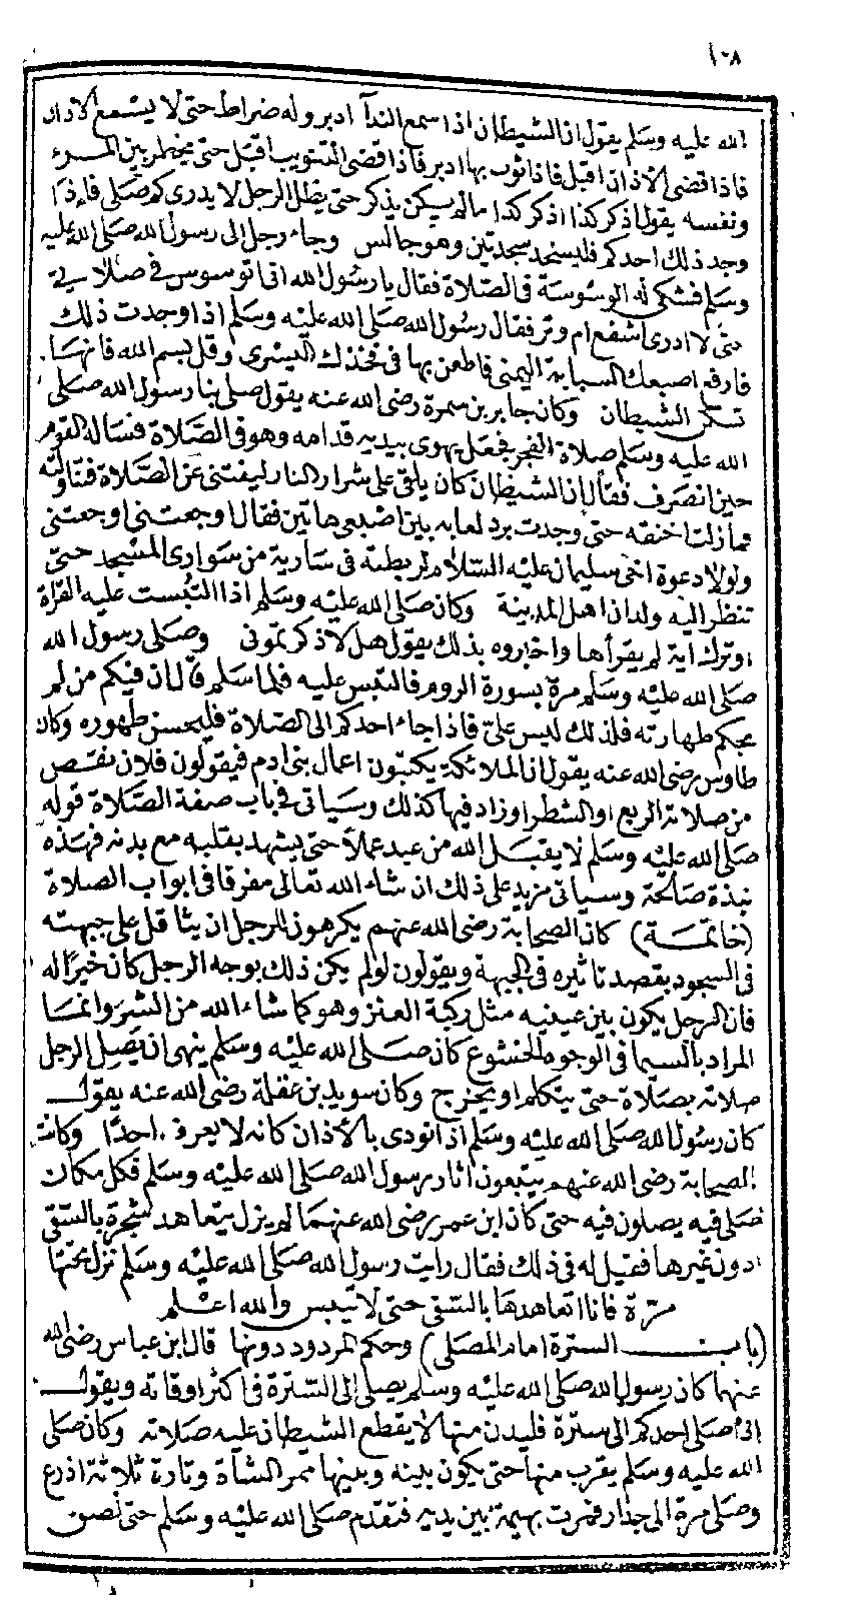 ١٠٨
الله عليه وسلم يقول ان الشيطان اذا سمع الندآ ادبر وله ضراط حتى لا يسمع الاذان
فاذا قضى الاذان اقبل فاذا ثوب بها ادبر فاذا قضى التثويب اقبل حتى يخطر بين المرء
ونفسه يقول اذكر كذا اذكر كذا مالم يكن يذكر حتى يظل الرجل لا يدرى كم صلى فاذا
وجد ذلك احدكم فليسجد سجدتين وهو جالس وجاء رجل الى رسول الله صلى الله عليه
وسلم فشكى له الوسوسة فى الصلاة فقال يا رسول الله انى اتوسوس فى صلاتى
حتى لا ادرى اشفع ام وتر فقال رسول الله صلى الله عليه وسلم اذا وجدت ذلك
فارفع اصبعك السبابة اليمنى فاطعن بها فى فخذك اليسرى وقل بسم الله فانها
تسكن الشيطان وكان جابر بن سمرة رضى الله عنه يقول صلى بنا رسول الله صلى
الله عليه وسلم صلاة الفجر فجعل يهوى بيديه قدامه وهو فى الصلاة فسأله القوم
حين انصرف فقال ان الشيطان كان يلقى على شرار النار ليفتننى عن الصلاة فتناولته
فما زلت اخنقه حتى وجدت برد لعابه بين اصبعى هاتين فقال اوجعتنى اوجعتنى
ولولا دعوة اخى سليمان عليه السلام لربطته فى سارية من سوارى المسجد حتى
تنظر اليه ولدان اهل المدينة وكان صلى الله عليه وسلم اذا التبست عليه القراة
او ترك اية لم يقرأها واخبروه بذلك يقول هل لا ذكرتمونى وصلى رسول الله
صلى الله عليه وسلم مرة بسورة الروم فالتبس عليه فلما سلم قال ان فيكم من لم
يحكم طهارته فلذلك لبس على فاذا جاء احدكم الى الصلاة فليحسن طهوره وكان
طاوس رضى الله عنه يقول ان الملائكة يكتبون اعمال بنى ادم فيقولون فلان نقص
من صلاته الربع او الشطر اوزاد فيها كذلك وسياتى فى باب صفة الصلاة قوله
صلى الله عليه وسلم لا يقبل الله من عبد عملا حتى يشهد بقلبه مع بدنه فهذه
نبذة صالحة وسياتى مزيد على ذلك ان شاء الله تعالى مفرقا فى ابواب الصلاة
(خاتمة) كان الصحابة رضى الله عنهم يكرهون للرجل ان يثاقل على جبهته
فى السجود بقصد تاثيره فى الجبهة ويقولون لولم يكن ذلك بوجه الرجل كان خيرا له
فان الرجل يكون بين عينيه مثل ركبة العنز وهو كما شاء الله من الشر وانما
المراد بالسيما فى الوجوه الخشوع كان صلى الله عليه وسلم ينهى ان يصل الرجل
صلاته بصلاة حتى يتكلم او يخرج وكان سويد بن غفلة رضى الله عنه يقول
كان رسول الله صلى الله عليه وسلم اذا نودى بالأذان كانه لا يعرف احدا وكانت
الصحابة رضى الله عنهم يتبعون اثار رسول الله صلى الله عليه وسلم فكل مكان
صلى فيه يصلون فيه حتى كان ابن عمر رضى الله عنهما لم يزل يتعاهد شجرة بالسقى
دون غيرها فقيل له فى ذلك فقال رايت رسول الله صلى الله عليه وسلم نزل تحتها
مرة فانا اتعاهدها بالسقى حتى لا تيبس والله اعلم
(باب السترة امام المصلى) وحكم المرور دونها قال ابن عباس رضى الله
عنهما كان رسول الله صلى الله عليه وسلم يصلى الى السترة فى اكثر اوقاته ويقول
اذا صلى احدكم الى سترة فليدن منها لا يقطع الشيطان عليه صلاته وكان صلى
الله عليه وسلم يقرب منها حتى يكون بينه وبينها ممر الشاة وتارة ثلاثة اذرع
وصلى مرة الى جدار فمرت بهيمة بين يديه فتقدم صلى الله عليه وسلم حتى لصق